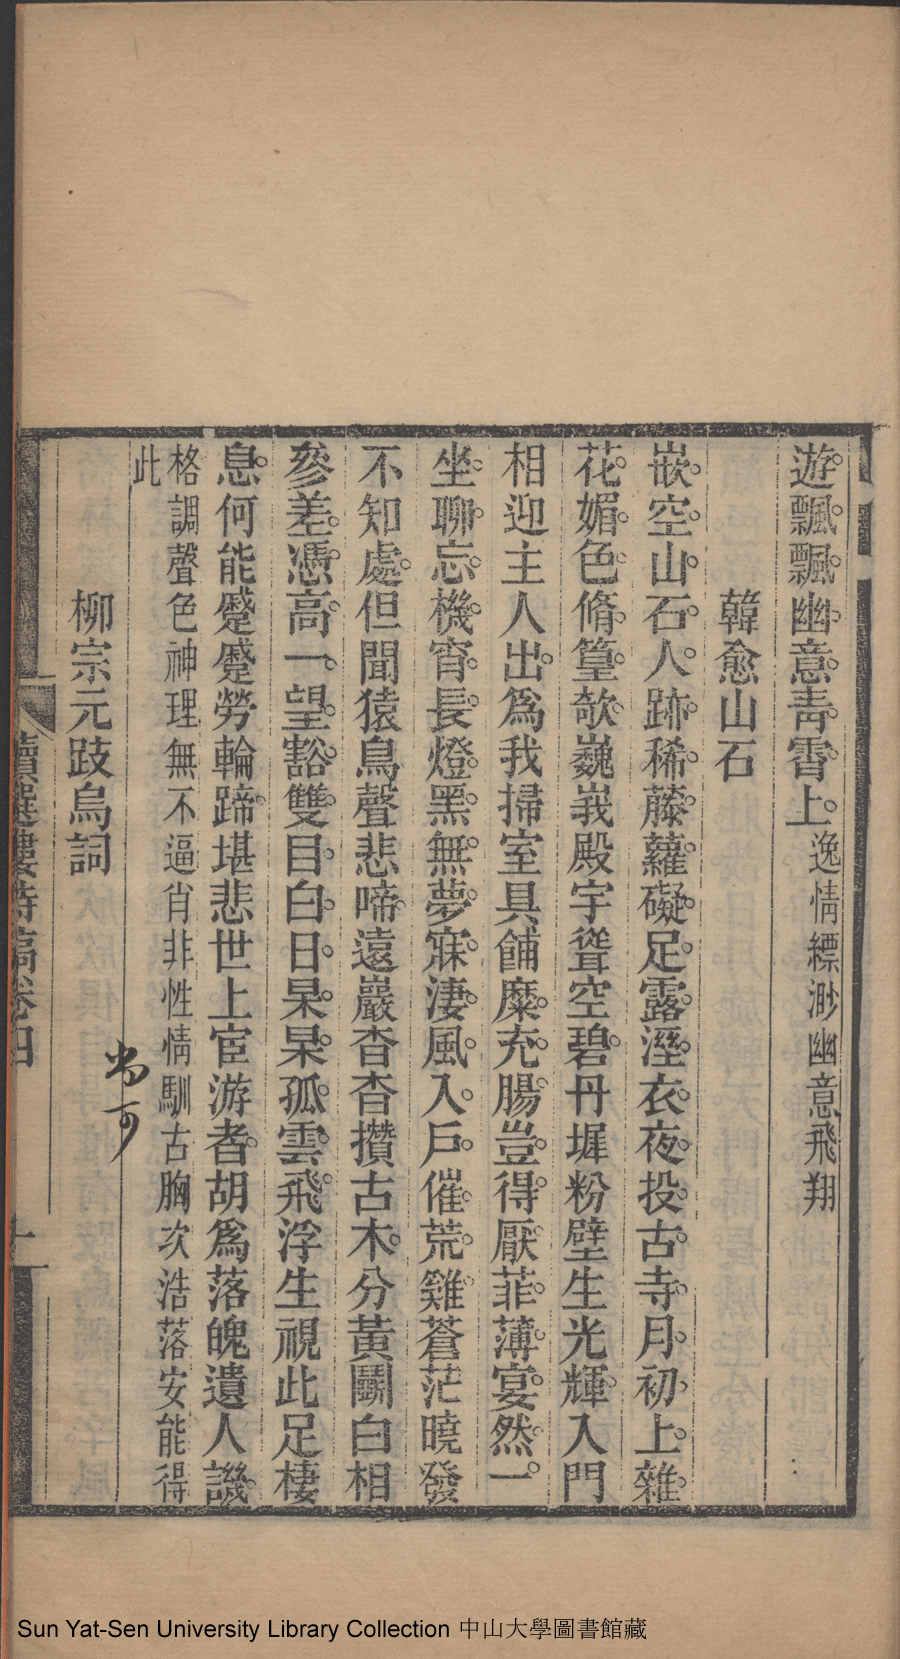 遊飄飄幽意靑霄上逸情縹渺幽意飛翔
韓愈山石
嵌空山石人跡稀藤蘿礙足露溼衣夜投古寺月初上雜
花媚色脩篁欹巍峩殿宇聳空碧丹墀粉壁生光輝入門
相迎主人出爲我掃室具餔糜充腸豈得厭菲薄宴然一
坐聊忘機宵長燈黑無夢寐淒風入戶催荒雞蒼茫曉發
不知處但聞猿鳥聲悲啼遠巖杳杳攢古木分黃鬭白相
參差憑高一望豁雙目白日杲杲孤雲飛浮生視此足棲
息何能蹙蹙勞輪蹄堪悲世上宦游者胡爲落魄遺人譏
格調聲色神理無不逼肖非性情馴古胸次浩落安能得
此
尚可
柳宗元跂烏詞
讀選樓詩稿卷四
十
Sun Yat-Sen University Library Collection 中山大學圖書館藏